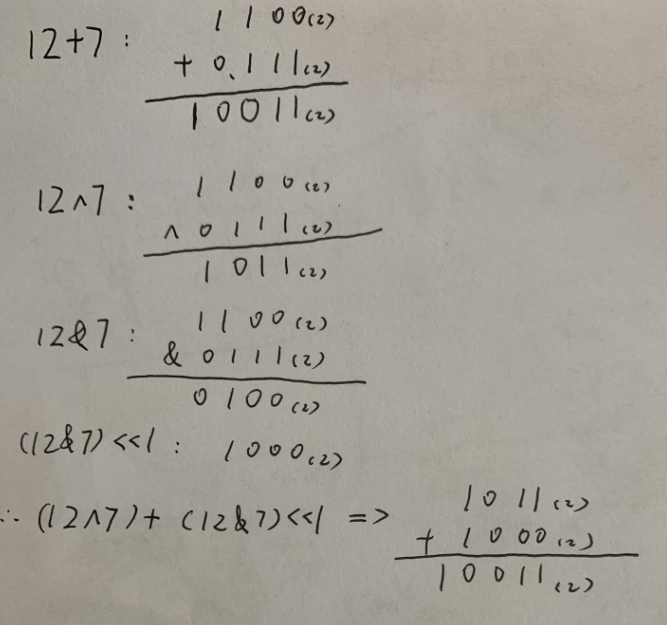 12+7 : 1 1 0 0(2)
+ 0.1 1 1(2)
1 0 0 1 1(2)
12∧7 : 1 1 0 0(2)
∧ 0 1 1 1(2)
1 0 1 1(2)
12&7 : 1 1 0 0(2)
& 0 1 1 1(2)
0 1 0 0(2)
(12&7)<<1 : 1 0 0 0(2)
∴ (12∧7)+ (12&7)<<1 => 1 0 1 1(2)
+ 1 0 0 0(2)
1 0 0 1 1(2)